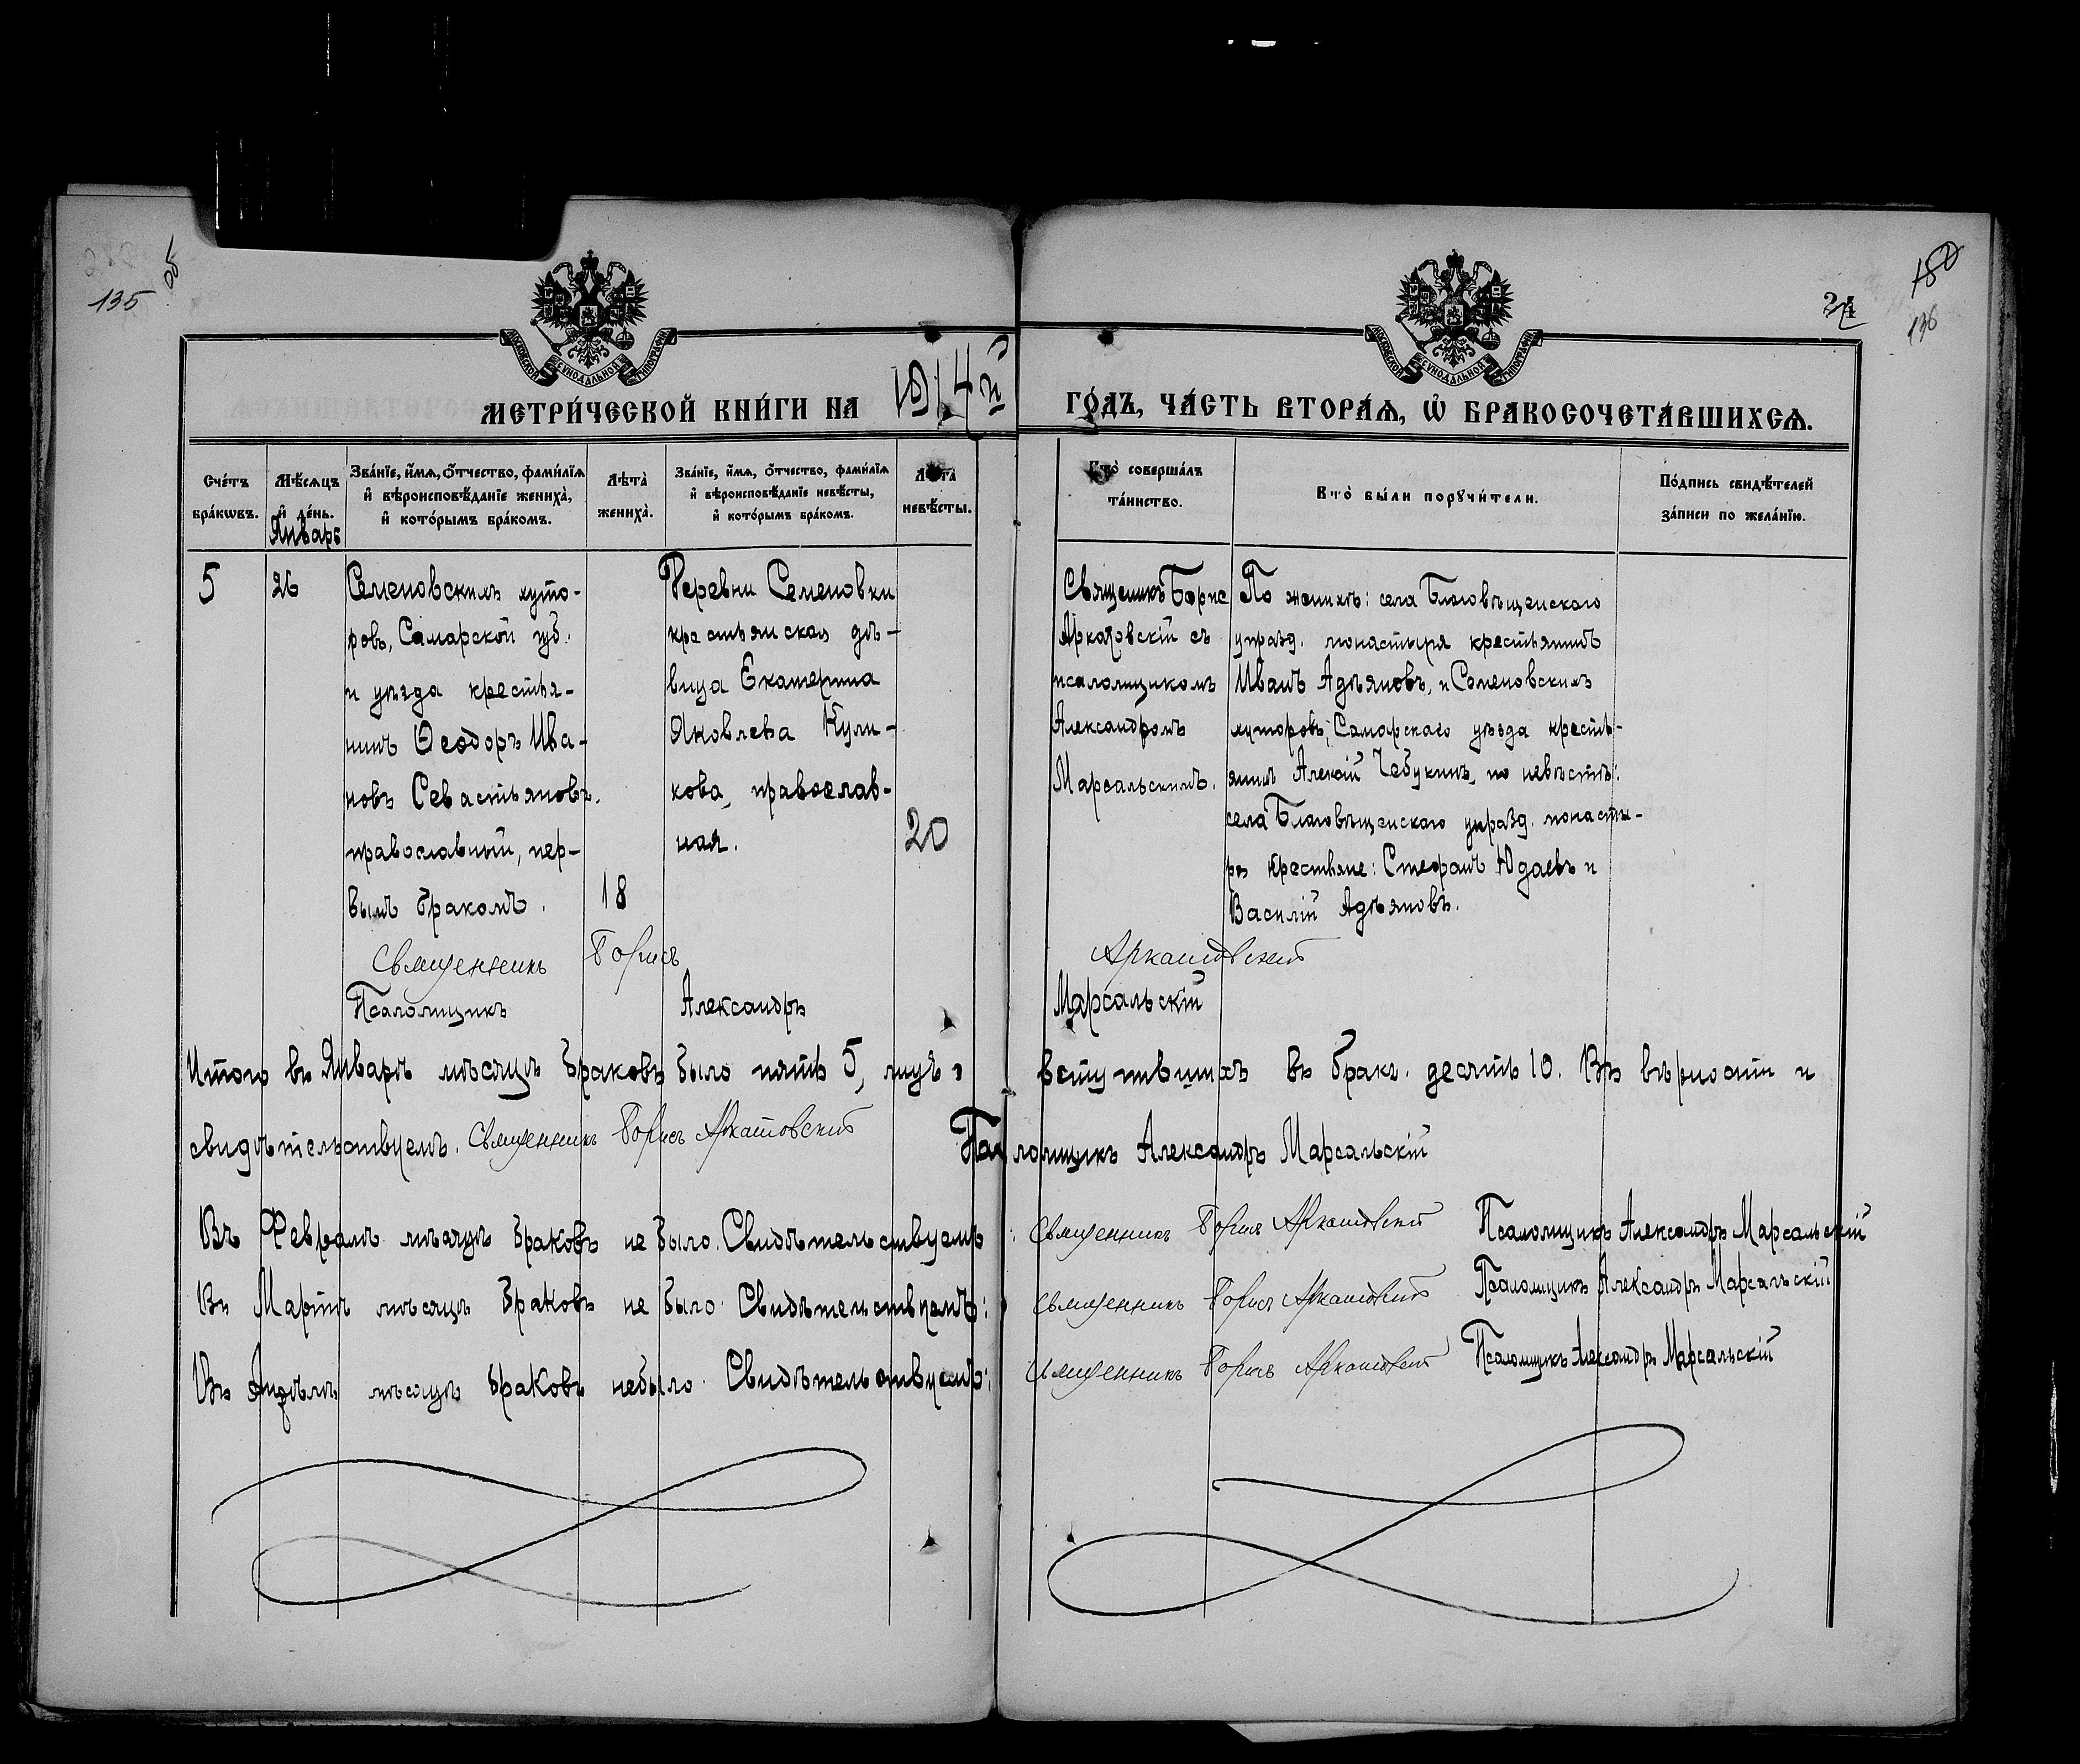 135
об
180
136
МОСКОВСКОЙ СѴНОДАЛЬНОЙ ТИПОГРАФІИ
МОСКОВСКОЙ СѴНОДАЛЬНОЙ ТИПОГРАФІИ
МЕТРИ́ЧЕСКОЙ КНИ́ГИ НА 1914й ГО́ДЪ, ЧА́СТЬ ВТОРА́Ѧ, Ѡ҆ БРАКОСОЧЕТА́ВШИХСѦ.
Сче́тъ
бра́кѡвъ.
Мѣ́сяцъ
и҆ де́нь.
Январь
Зва́нїе, и҆́мѧ, ѻ҆́тчество, фами́лїѧ
и҆ вѣроисповѣ́данїе жениха̀,
и҆ кото́рымъ бра́комъ.
Лѣ́та̀
жениха̀.
Зва́нїе, и҆́мѧ, ѻ҆́тчество, фами́лїѧ
и҆ вѣроисповѣ́данїе невѣ́сты,
и҆ кото́рымъ бра́комъ.
Лѣ́та̀
невѣ́сты.
Кто̀ соверша́лъ
та́инство.
Кто̀ бы́ли порꙋчи́тели.
По́дпись свидѣ́телей
за́писи по жела́нїю.
5
26
Семеновскихъ хуто-
ровъ, Самарской губ.
и уѣзда крестья-
нинъ Ѳеодоръ Ива-
новъ Севастьяновъ.
православный, пер-
вымъ бракомъ.
18
Деревни Семеновки
крестьянская дѣ-
вица Екатерина
Яковлева Кули-
кова, православ-
ная.
20
Священникъ Борис
Аркатовскій съ
псаломщикомъ
Александромъ
Марсальскимъ.
По женихѣ: села Благовѣщенскаго
упразд. монастыря крестьянинъ
Иванъ Адѣяновъ, и Семеновскихъ
хуторовъ, Самарскаго уѣзда кресть-
янинъ Алексій Чебукинъ, по невѣстѣ:
села Благовѣщенскаго упразд. монасты-
ря крестьяне: Стефанъ Юдаевъ и
Василій Адѣяновъ.
Священникъ Борисъ Аркатовскій
Псаломщикъ Александръ Марсальскій
Итого въ Январѣ мѣсяцѣ браковъ было пять 5, лицъ вступившихъ въ бракъ десять 10. Въ вѣрности и
свидѣтельствуемъ. Священникъ Борисъ Аркатовскій Псаломщикъ Александръ Марсальскій
Въ Февралѣ мѣсяцѣ браковъ не было. Свидѣтельствуемъ: Священникъ Борисъ Аркатовскій Псаломщикъ Александръ Марсальскій
Въ Мартѣ мѣсяцѣ браковъ не было. Свидѣтельствуемъ: Священникъ Борисъ Аркатовскій Псаломщикъ Александръ Марсальскій
Въ Апрѣлѣ мѣсяцѣ браковъ небыло. Свидѣтельствуемъ: Священникъ Борисъ Аркатовскій Псаломщикъ Александръ Марсальскій